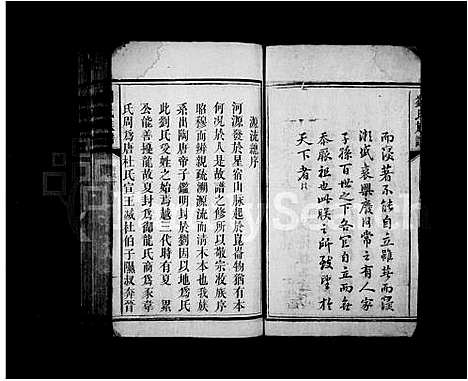 而寖著不能自立雖甚而寖
漸盛衰興廢何常之有人家
子孫百世之下各宜自立而毋
忝厥祖也此朕之所致望於
天下者
源流總序
河源發於星宿山脉起於崑崙物猶有本
何況於人是故譜之修所以敬宗收族序
昭穆而辨親疏溯源流而清木本也我族
系出陶唐帝子鑑明封於劉因以地為氏
此劉氏受姓之始焉越三代時有夏 累
公能善擾龍故夏封為御龍氏商為豕韋
氏周為唐杜氏宣王滅杜伯子隰叔奔晉